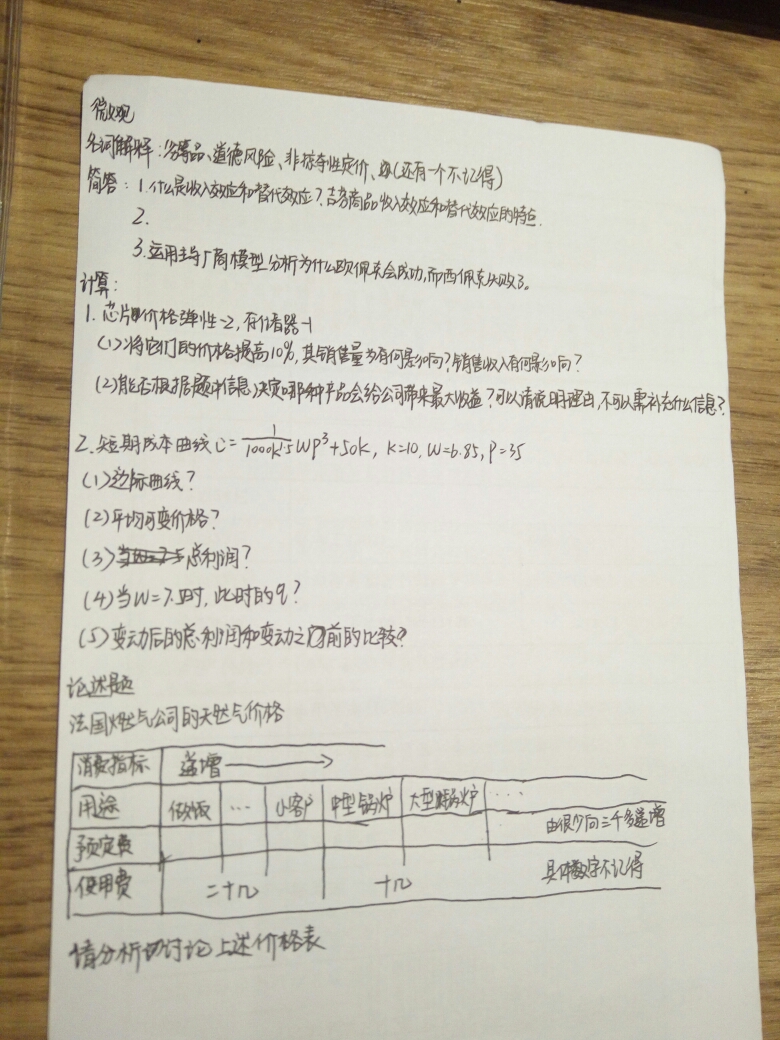 微观
名词解释：劣等品、道德风险、非掠夺性定价、(还有一个不记得)
简答：1.什是收入效应和替代效应？吉芬商品收入效应和替代效应的特点.
2.
3.运用主导厂商模型分析为什么欧佩克会成功,而西佩克失败了。
计算：
1.芯片价格弹性-2,存储器-1
(1)将它们的价格提高10%,其销售量为有何影响？销售收入有何影响？
(2)能否根据题中信息决定哪种产品会给公司带来最大收益？可以请说明理由,不可以需补充什么信息？
2.短期成本曲线C=1/1000K^1.5 WP³+50K, K=10,W=6.85,P=35
(1)边际曲线？
(2)平均可变价格？
(3)总利润？
(4)当W=7.5时,此时的q？
(5)变动后的总利润和变动之前的比较？
论述题
法国燃气公司的天然气价格
消费指标 递增
用途 做饭 … 小客户 中型锅炉 大型锅炉 ……
预定费 由很少向三千多递增
使用费 二十几 十几 具体数字不记得
请分析切讨论上述价格表